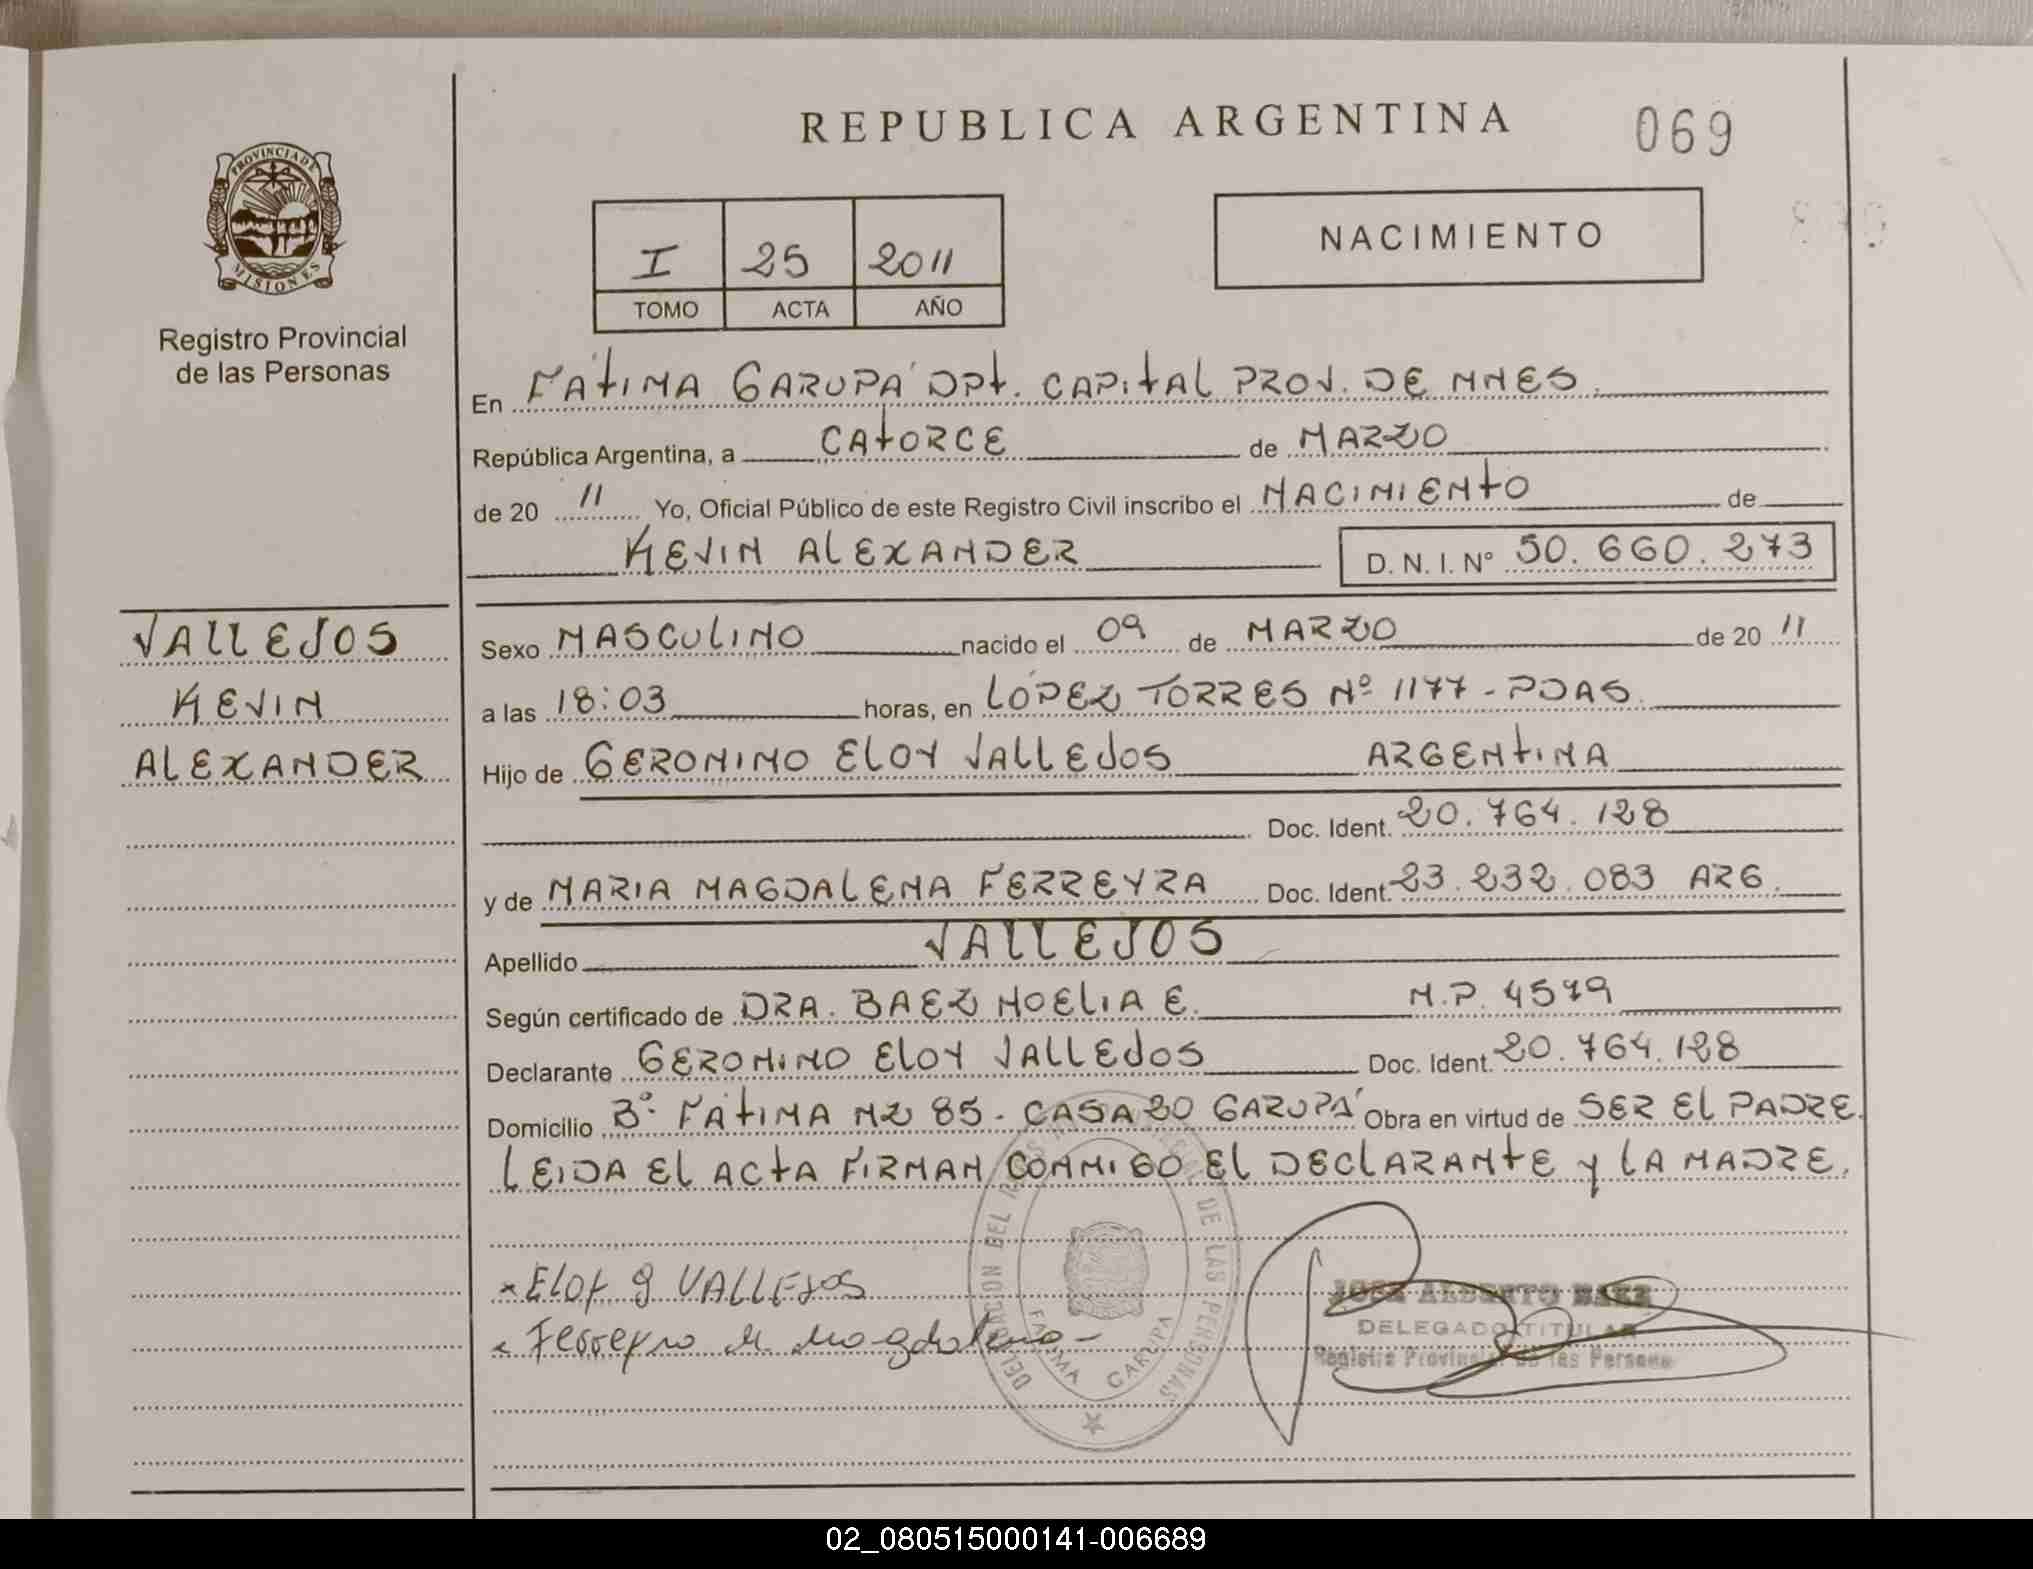 REPUBLICA ARGENTINA
069
PROVINCIA DE
MISIONES
Registro Provincial
de las Personas
I 25 2011
TOMO ACTA AÑO
NACIMIENTO
En FÁTIMA GARUPÁ DPT. CAPITAL PROV. DE MNES.
República Argentina, a CATORCE de MARZO
de 20 11 Yo, Oficial Público de este Registro Civil inscribo el NACIMIENTO de
KEVIN ALEXANDER D. N. I. Nº 50.660.273
VALLEJOS
KEVIN
ALEXANDER
Sexo MASCULINO nacido el 09 de MARZO de 20 11
a las 18:03 horas, en LÓPEZ TORRES Nº 1177 - PDAS.
Hijo de GERONIMO ELOY VALLEJOS ARGENTINA
Doc. Ident. 20.764.128
y de MARIA MAGDALENA FERREYRA Doc. Ident. 23.232.083 ARG.
Apellido VALLEJOS
Según certificado de DRA. BAEZ NOELIA E. M.P. 4579
Declarante GERONIMO ELOY VALLEJOS Doc. Ident. 20.764.128
Domicilio Bº FÁTIMA MZ 85 - CASA 20 GARUPÁ Obra en virtud de SER EL PADRE.
LEIDA EL ACTA FIRMAN CONMIGO EL DECLARANTE Y LA MADRE.
x ELOY g VALLEJOS
x Ferreyra M. Magdalena -
DELEGACION DEL DE LAS PERSONAS
FATIMA GARUPA
JOSE ALBERTO BAEZ
DELEGADO TITULAR
Registro Provincial de las Personas
02_080515000141-006689